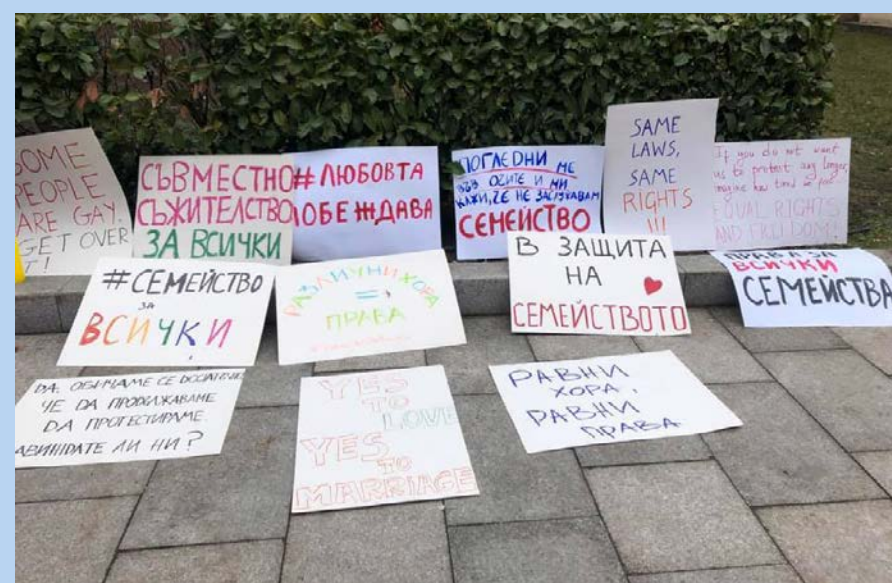 SOME
PEOPLE
ARE GAY.
GET OVER
IT!
СЪВМЕСТНО
СЪЖИТЕЛСТВО
ЗА ВСИЧКИ
# ЛЮБОВТА
ПОБЕЖДАВА
ПОГЛЕДНИ МЕ
В ОЧИТЕ И МИ
КАЖИ, ЧЕ НЕ ЗАСЛУЖАВАМ
СЕМЕЙСТВО
SAME
LAWS,
SAME
RIGHTS
!!!
If you do not want
us to protest any longer,
imagine how tired we feel
EQUAL RIGHTS
AND FREEDOM!
# СЕМЕЙСТВО
за
ВСИЧКИ
РАЗЛИЧНИ ХОРА
=
ПРАВА
В ЗАЩИТА
НА
СЕМЕЙСТВОТО
ПРАВА ЗА
ВСИЧКИ
СЕМЕЙСТВА
ДА, ОБИЧАМЕ СЕ ДОСТАТЪЧНО,
ЧЕ ДА ПРОДЪЛЖАВАМЕ
ДА ПРОТЕСТИРАМЕ.
ЛИ НИ?
YES
TO
LOVE
YES
TO
MARRIAGE
РАВНИ
ХОРА,
РАВНИ
ПРАВА